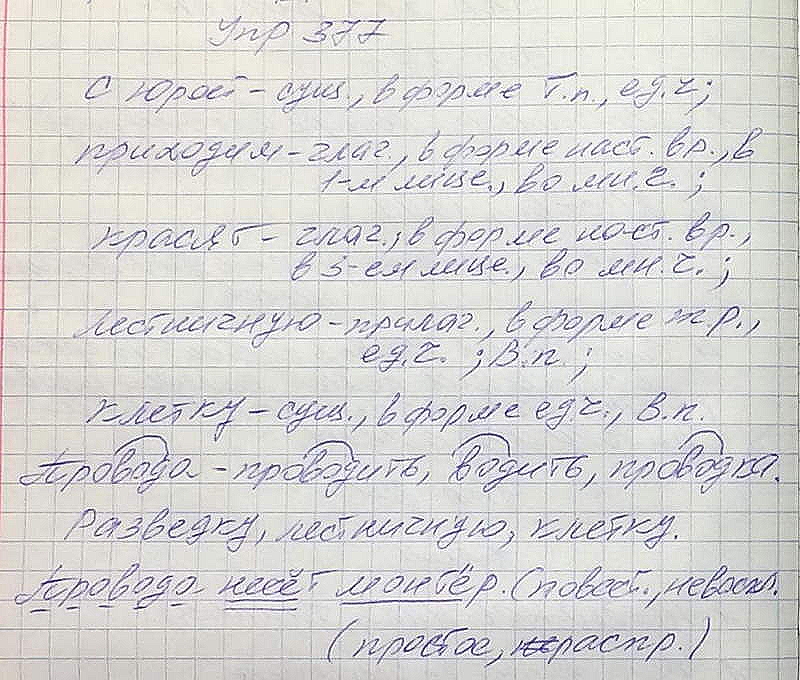 Упр 377
С Юрой - сущ., в форме Т.п., ед.ч;
приходим - глаг., в форме наст. вр., в
1-м лице., во мн.ч.;
красят - глаг.; в форме наст. вр.,
в 3-ем лице., во мн.ч.;
лестничную - прилаг., в форме ж.р.,
ед.ч.; В.п.;
клетку - сущ., в форме ед.ч., В.п.
Провода - проводить, водить, проводка.
Разведку, лестничную, клетку.
Провода несёт монтёр. (повест., невоскл.
(простое, распр.)